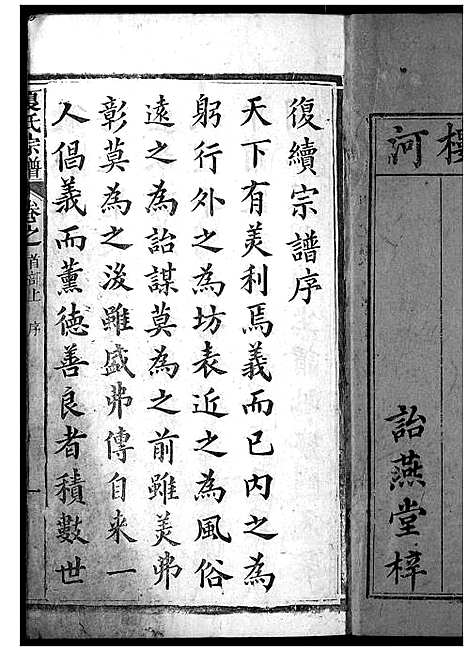 樓
河
詒燕堂梓
復續宗譜序
天下有美利焉義而已內之為
躬行外之為坊表近之為風俗
遠之為詒謀莫為之前雖美弗
彰莫為之後雖盛弗傳自來一
人倡義而薰德善良者積數世
氏宗譜
卷之首
上
序
一